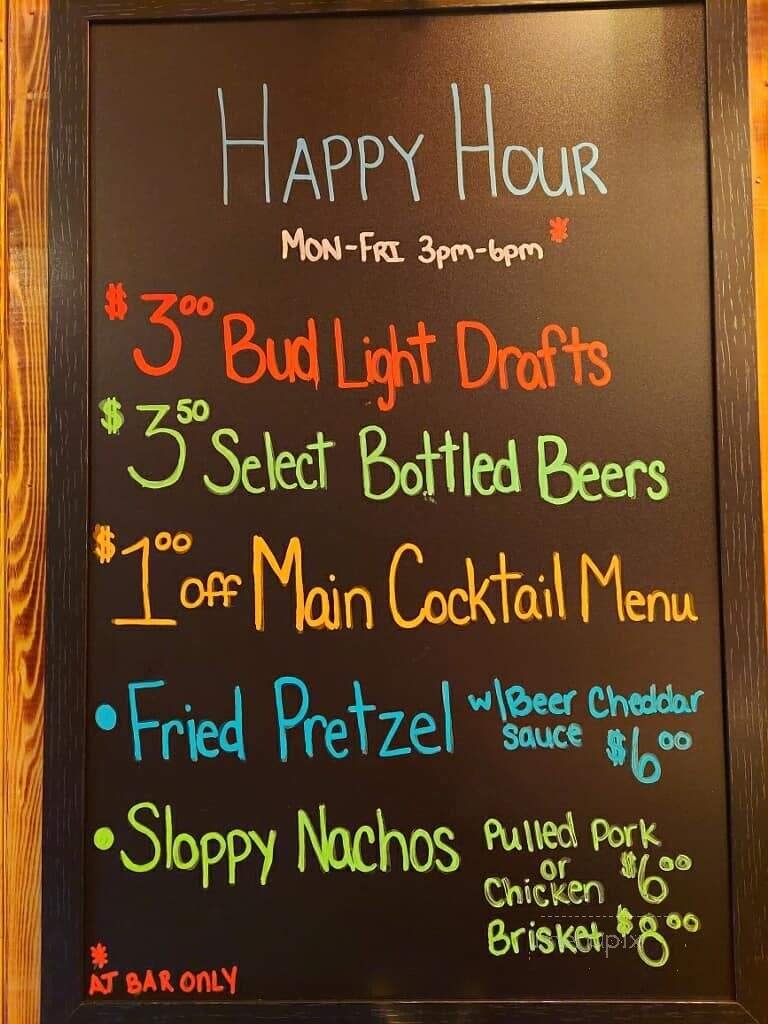 HAPPY HOUR
MON-FRI 3pm-6pm*
$3.00 Bud Light Drafts
$3.50 Select Bottled Beers
$1.00 off Main Cocktail Menu
• Fried Pretzel w/Beer Cheddar
sauce $6.00
• Sloppy Nachos Pulled Pork
or
Chicken $6.00
Brisket $8.00
*
AT BAR ONLY